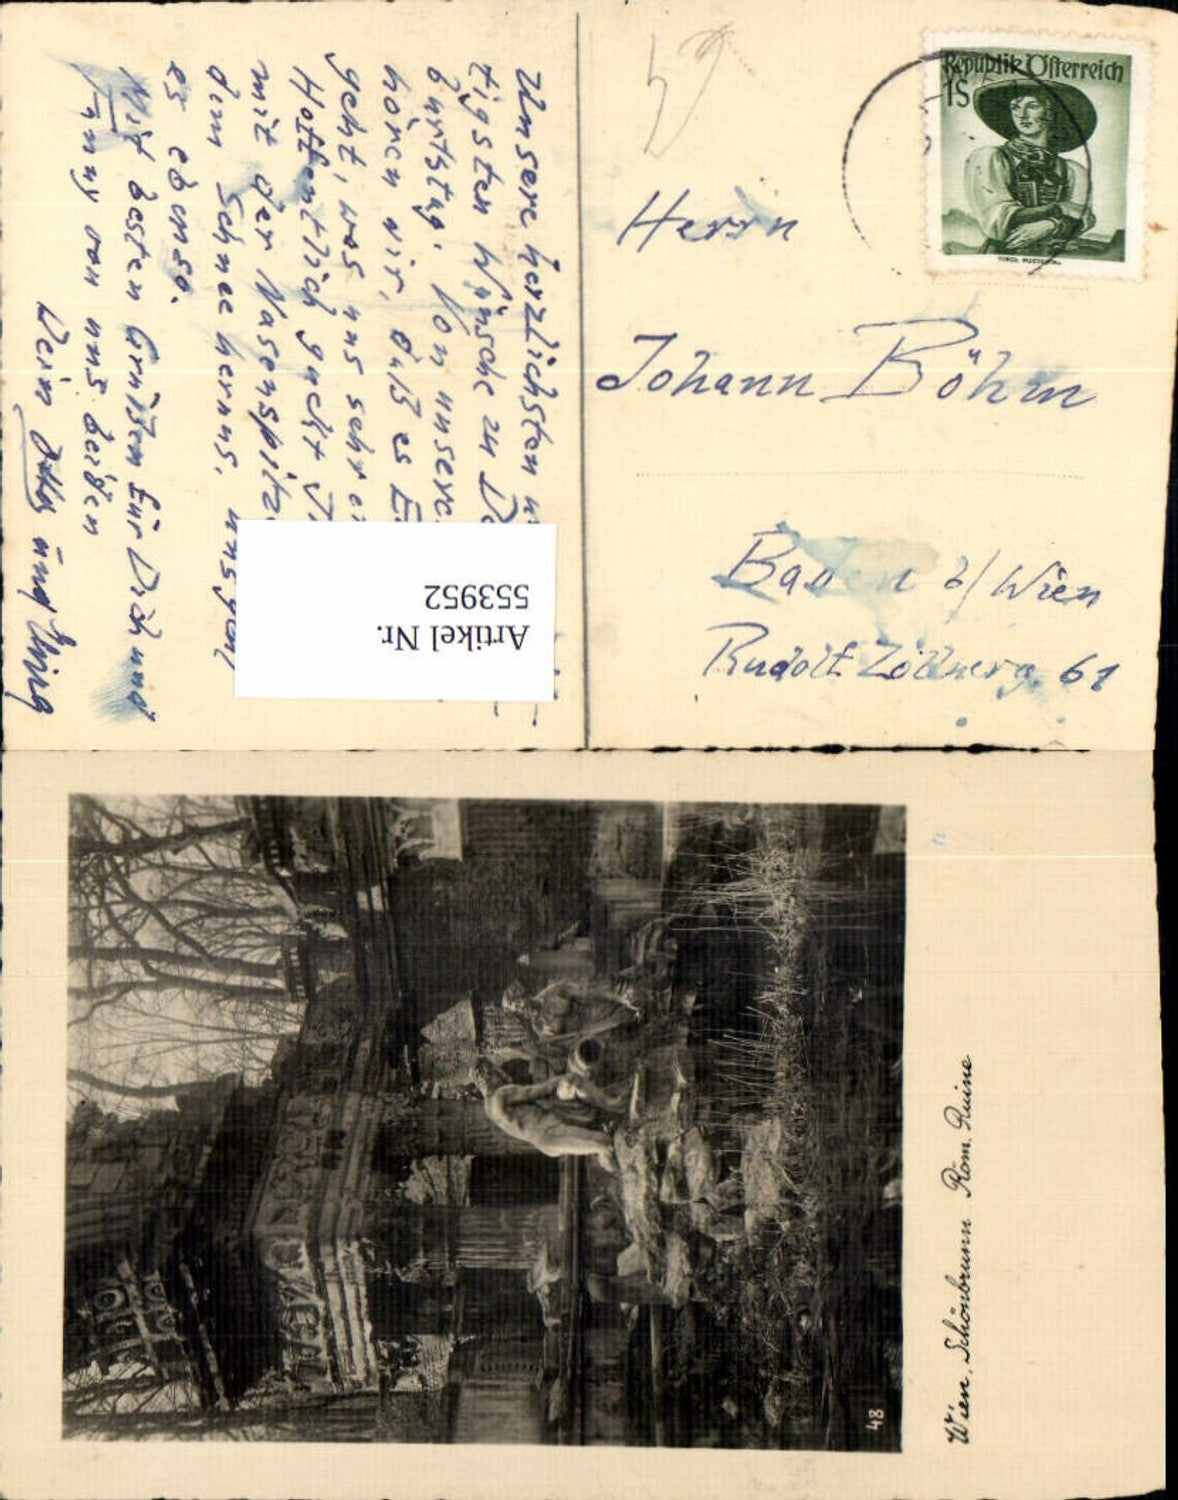 Unsere herzlichsten u
tigsten Wünsche zu De
burtstag. Von unsere
hören wir, daß es E
geht, was uns sehr e
Hoffentlich guckt
mit der Nasenspitz
dem Schnee heraus. uns geht
es ebenso.
Mit besten Grüßen für Dich und
Fanny von uns beiden
Dein und
Artikel Nr.
553952
Republik Österreich
1S
TIROL PUSTERTAL
Herrn
Johann Böhm
Baden b/Wien
Rudolf Zöllnerg. 61
48
Wien, Schönbrunn Röm. Ruine